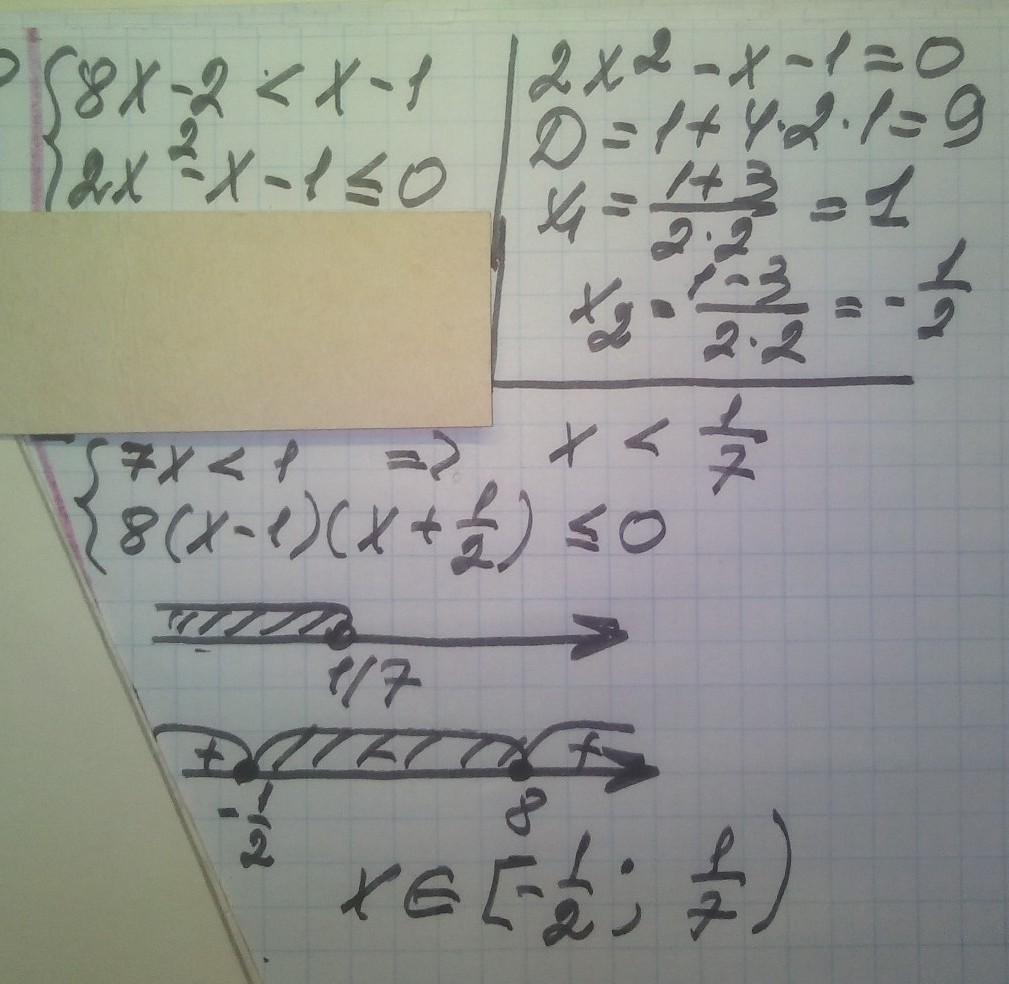 { 8x - 2 < x - 1
2x² - x - 1 ≤ 0
2x² - x - 1 = 0
D = 1 + 4·2·1 = 9
x₁ = (1+3)/(2·2) = 1
x₂ = (1-3)/(2·2) = -1/2
{ 7x < 1 => x < 1/7
8(x-1)(x + 1/2) ≤ 0
1/7
+ - +
-1/2 8
x ∈ [-1/2; 1/7)